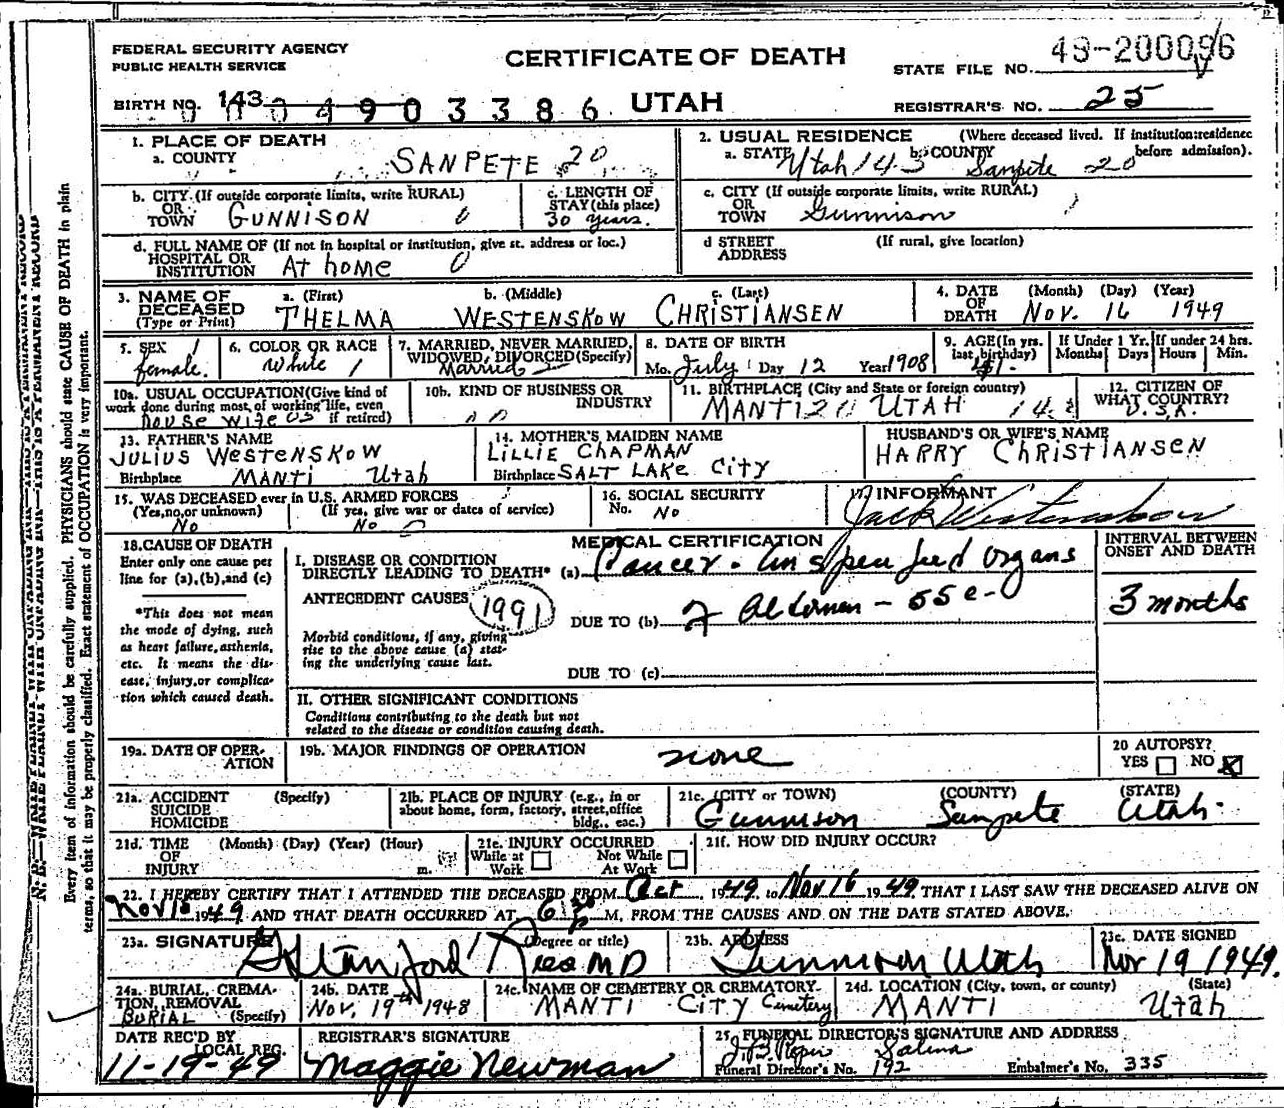 FEDERAL SECURITY AGENCY
PUBLIC HEALTH SERVICE
CERTIFICATE OF DEATH
STATE FILE NO.
BIRTH NO. 143
0 4 9 0 3 3 8 6 UTAH
REGISTRAR'S NO. 25
1. PLACE OF DEATH
a. COUNTY SANPETE 20
2. USUAL RESIDENCE (Where deceased lived. If institution:residence before admission).
a. STATE Utah 143 b. COUNTY Sanpete 20
b. CITY (If outside corporate limits, write RURAL)
OR
TOWN GUNNISON 0
c. LENGTH OF
STAY (this place)
30 years.
c. CITY (If outside corporate limits, write RURAL)
OR
TOWN Gunnison
d. FULL NAME OF (If not in hospital or institution, give st. address or loc.)
HOSPITAL OR
INSTITUTION At home 0
d STREET (If rural, give location)
ADDRESS
3. NAME OF DECEASED
(Type or Print)
a. (First) b. (Middle) c. (Last)
THELMA WESTENSKOW CHRISTIANSEN
4. DATE OF DEATH (Month) (Day) (Year)
Nov. 16 1949
5. SEX
female.
6. COLOR OR RACE
White
7. MARRIED, NEVER MARRIED,
WIDOWED, DIVORCED (Specify)
Married
8. DATE OF BIRTH
Mo. July Day 12 Year 1908
9. AGE (In yrs. last birthday)
41.
If Under 1 Yr.
Months Days
If under 24 hrs.
Hours Min.
10a. USUAL OCCUPATION (Give kind of
work done during most of working life, even
if retired)
House wife
10b. KIND OF BUSINESS OR
INDUSTRY
11. BIRTHPLACE (City and State or foreign country)
MANTI 20 UTAH
12. CITIZEN OF
WHAT COUNTRY?
U.S.A.
13. FATHER'S NAME
JULIUS WESTENSKOW
Birthplace MANTI Utah
14. MOTHER'S MAIDEN NAME
LILLIE CHAPMAN
Birthplace SALT LAKE CITY
HUSBAND'S OR WIFE'S NAME
HARRY CHRISTIANSEN
15. WAS DECEASED ever in U.S. ARMED FORCES
(Yes, no, or unknown) (If yes, give war or dates of service)
No No
16. SOCIAL SECURITY
No. No
17. INFORMANT
Jack Westenskow
18. CAUSE OF DEATH
Enter only one cause per
line for (a), (b), and (c)
*This does not mean
the mode of dying, such
as heart failure, asthenia,
etc. It means the dis-
ease, injury, or complica-
tion which caused death.
MEDICAL CERTIFICATION
I. DISEASE OR CONDITION
DIRECTLY LEADING TO DEATH* (a) Cancer. Unspecified organs
ANTECEDENT CAUSES 1991
DUE TO (b) of abdomen
Morbid conditions, if any, giving
rise to the above cause (a) stat-
ing the underlying cause last.
DUE TO (c)
INTERVAL BETWEEN
ONSET AND DEATH
3 months
II. OTHER SIGNIFICANT CONDITIONS
Conditions contributing to the death but not
related to the disease or condition causing death.
19a. DATE OF OPER-
ATION
19b. MAJOR FINDINGS OF OPERATION
none
20 AUTOPSY?
YES NO
21a. ACCIDENT (Specify)
SUICIDE
HOMICIDE
21b. PLACE OF INJURY (e.g., in or
about home, form, factory, street, office
bldg., eac.)
21c. (CITY or TOWN) (COUNTY) (STATE)
Gunnison Sanpete Utah
21d. TIME (Month) (Day) (Year) (Hour)
OF
INJURY m.
21e. INJURY OCCURRED
While at Work Not While At Work
21f. HOW DID INJURY OCCUR?
22. I HEREBY CERTIFY THAT I ATTENDED THE DECEASED FROM Oct, 1949, to Nov 16 1949, THAT I LAST SAW THE DECEASED ALIVE ON
1949 AND THAT DEATH OCCURRED AT P M, FROM THE CAUSES AND ON THE DATE STATED ABOVE.
23a. SIGNATURE (Degree or title)
G Stanford Rees MD
23b. ADDRESS
Gunnison Utah
23c. DATE SIGNED
Nov 19 1949.
24a. BURIAL, CREMA-
TION, REMOVAL
BURIAL (Specify)
24b. DATE
Nov. 19th 1948
24c. NAME OF CEMETERY OR CREMATORY
MANTI CITY Cemetery
24d. LOCATION (City, town, or county) (State)
MANTI Utah
DATE REC'D BY
LOCAL REG.
11-19-49
REGISTRAR'S SIGNATURE
Maggie Newman
25. FUNERAL DIRECTOR'S SIGNATURE AND ADDRESS
Salina
Funeral Director's No. 192 Embalmer's No. 335
Every item of information should be carefully supplied. PHYSICIANS should state CAUSE OF DEATH in plain
terms, so that it may be properly classified. Exact statement of OCCUPATION is very important.